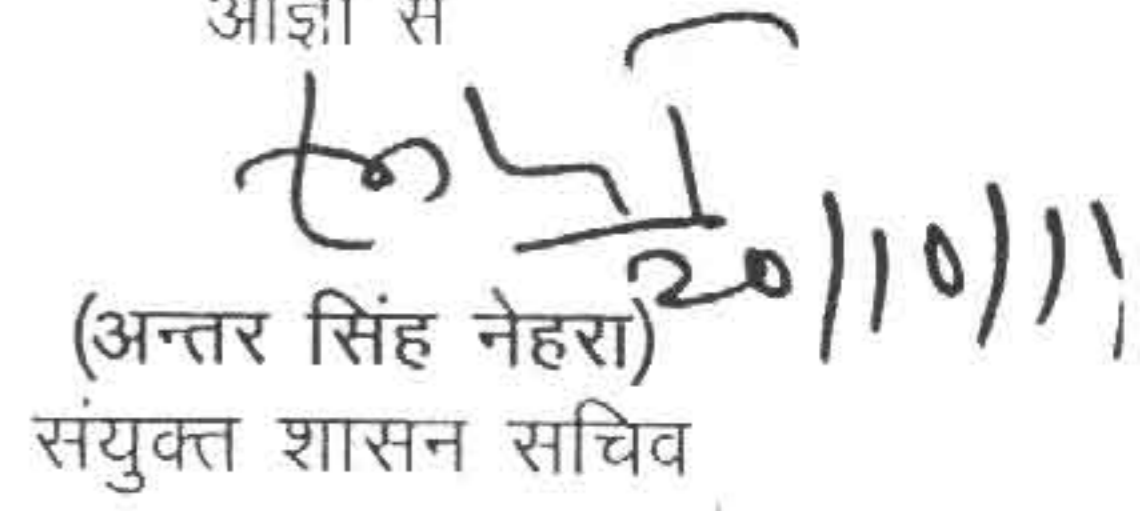 आज्ञा से
20/10/11
(अन्तर सिंह नेहरा)
संयुक्त शासन सचिव